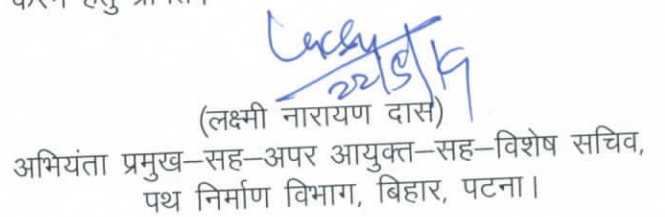 करने हेतु प्रेषित।
22/5/19
(लक्ष्मी नारायण दास)
अभियंता प्रमुख–सह–अपर आयुक्त–सह–विशेष सचिव,
पथ निर्माण विभाग, बिहार, पटना।